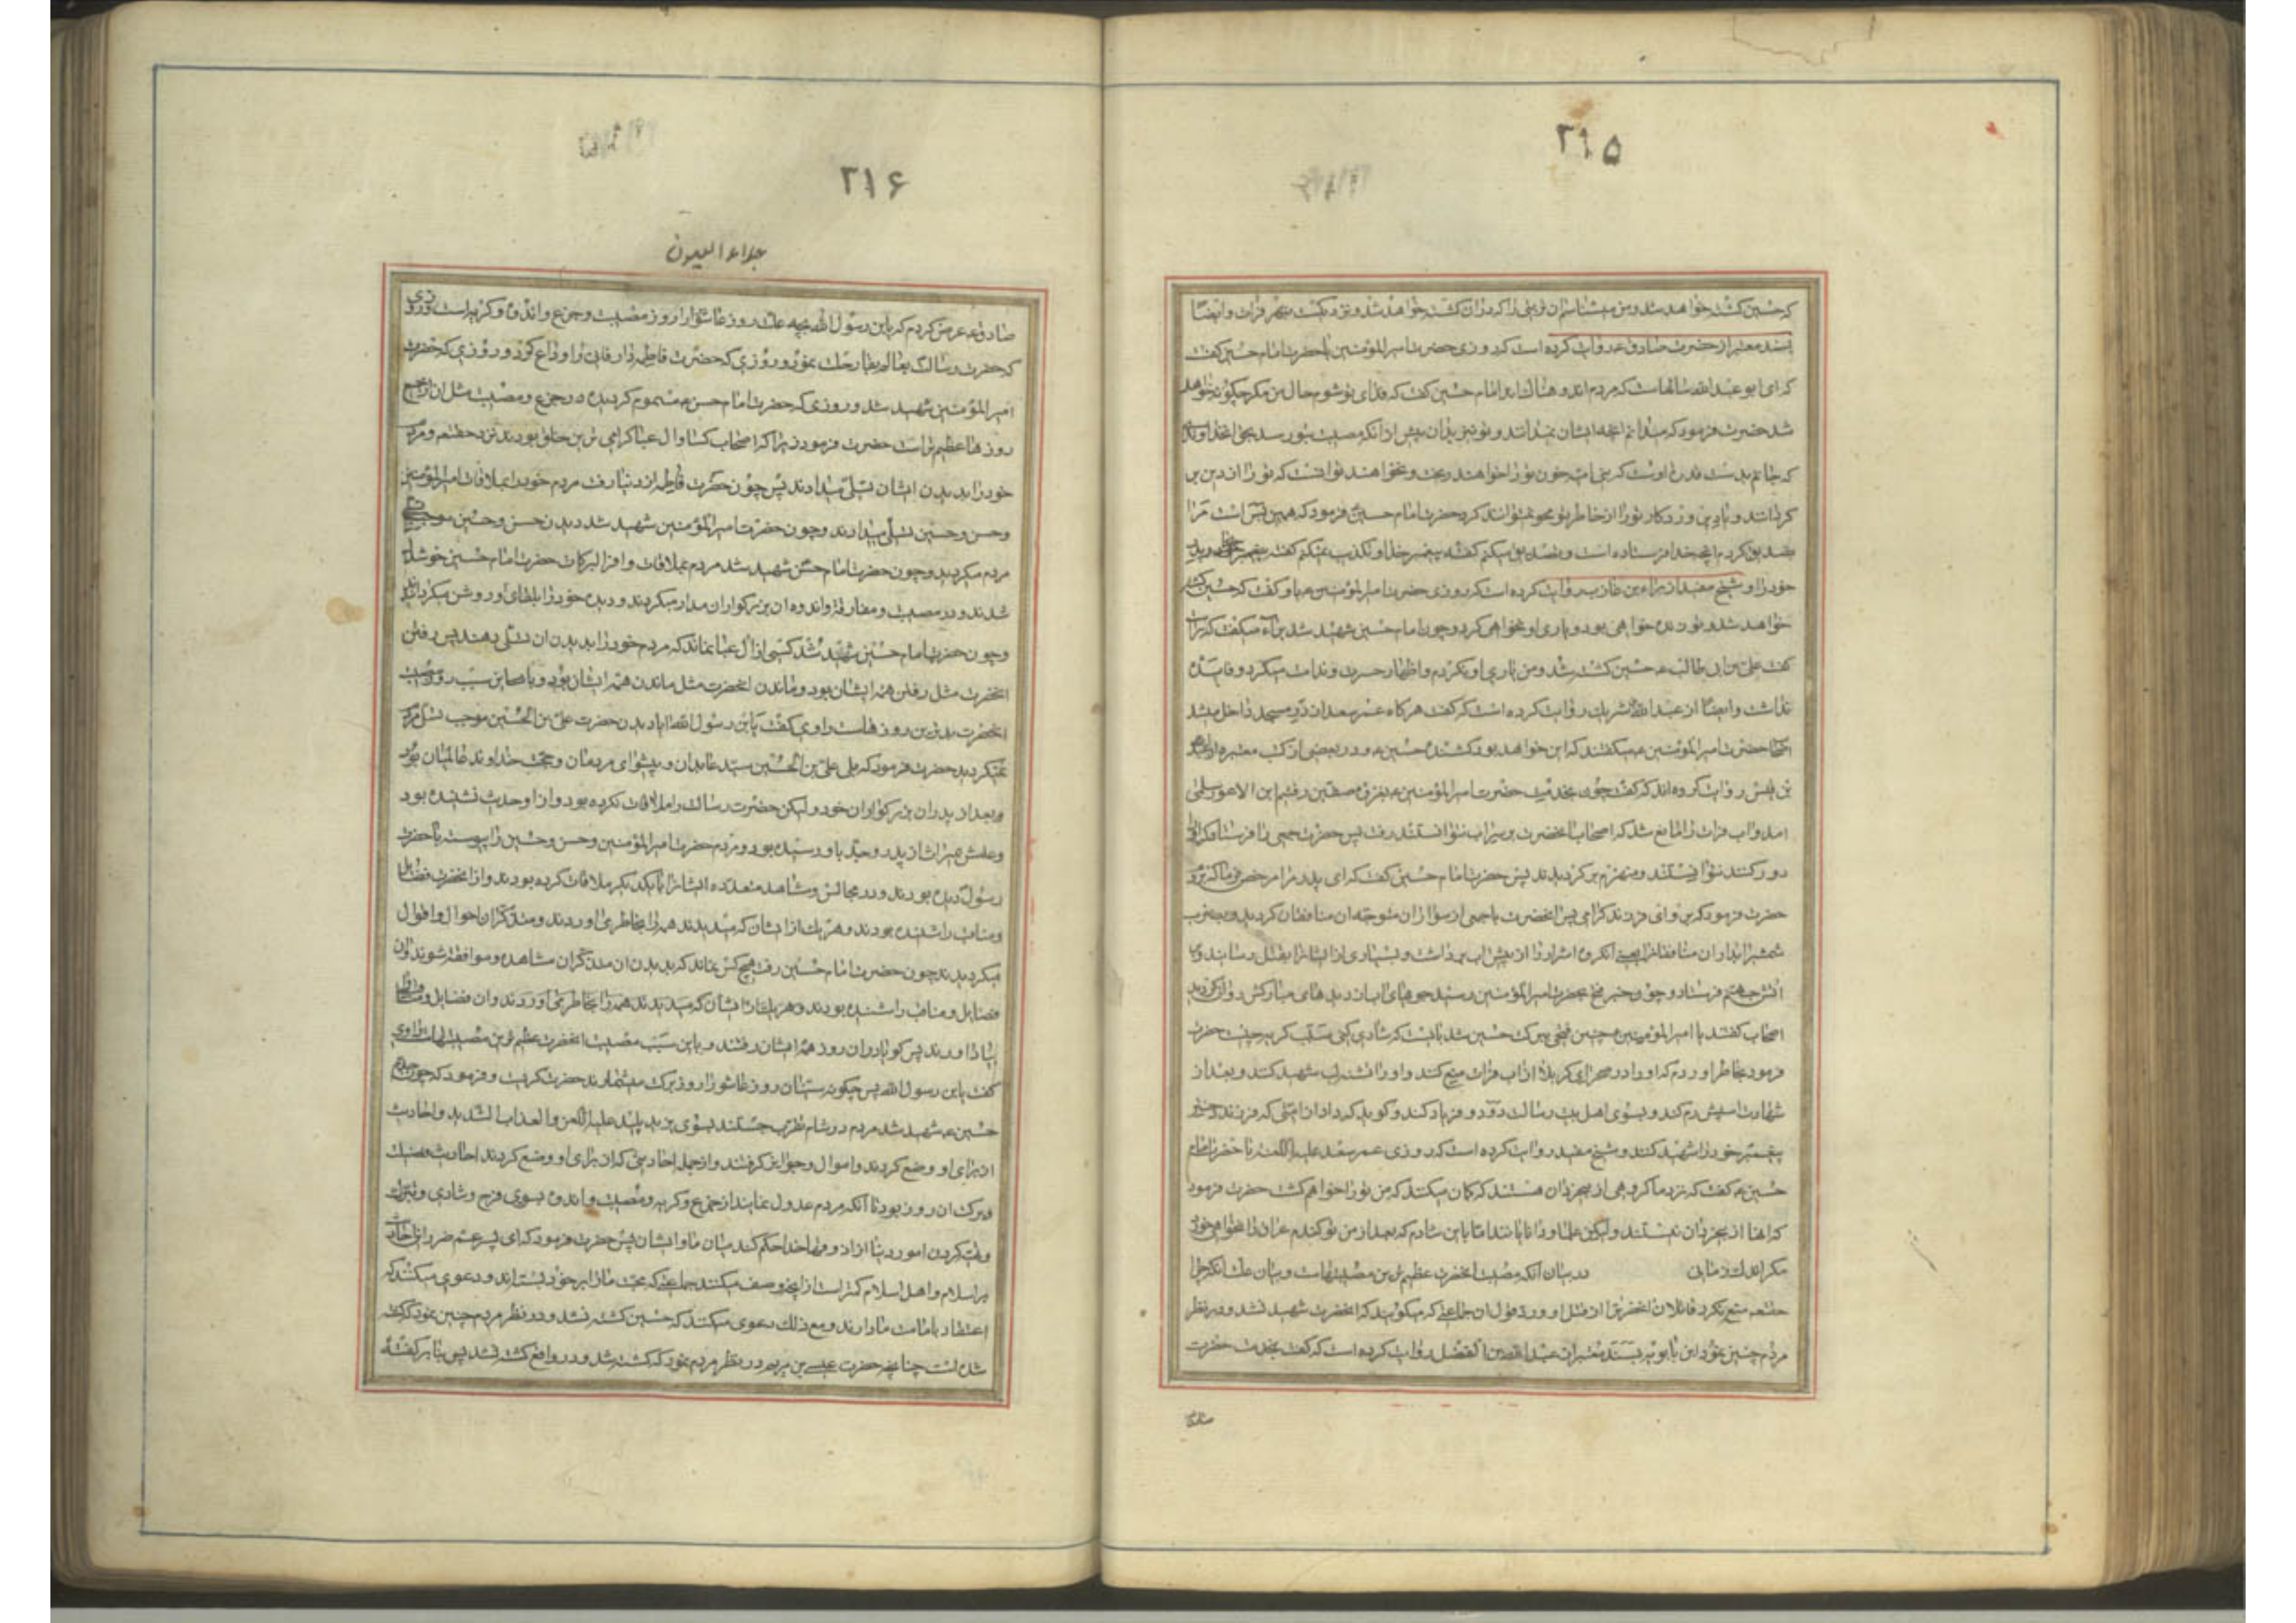 ۲۱۵
که حسین کشته خواهد شد و من میشناسم آن زمینی را که در آن کشته خواهد شد و نزدیکست بنهر فرات و ایضا
بسند معتبر از حضرت صادق ع روایت کرده است که روزی حضرت امیر المؤمنین با حضرت امام حسین گفت
که ای ابو عبد الله سالهاست که مردم اندوهناک اند امام حسین گفت که فدای تو شوم حال من مگر چگونه خواهد
شد حضرت فرمود که میدانم آنچه ایشان نمیدانند و تو نیز بدان پیش از آنکه مصیبت بتو رسد بحق خداوندی
که جانم بدست قدرت اوست که بنی امیه خون تو را خواهند ریخت و نخواهند توانست که تو را از دین بر
گردانند و یاد پروردکار تو را از خاطر تو محو نمیتوانند کرد حضرت امام حسین فرمود که همین بس است مرا
تصدیق کردم آنچه خدا فرستاده است و تصدیق میکنم گفته پیغمبر خدا و تکذیب نمیکنم گفته پدر
خود را و شیخ مفید از براء بن عازب روایت کرده است که روزی حضرت امیر المؤمنین ع باو گفت که حسین کشته
خواهد شد و تو زنده خواهی بود و یاری او نخواهی کرد و چون امام حسین شهید شد براء میگفت که راست
گفت علی بن ابی طالب ع حسین کشته شد و من یاری او نکردم و اظهار حسرت و ندامت میکرد و فایده
نداشت و ایضا از عبد الله شریک روایت کرده است که گفت هرکاه عمر سعد از در مسجد داخل میشد
اصحاب حضرت امیر المؤمنین ع میگفتند که این خواهد بود کشنده حسین ع و در بعضی از کتب معتبره از
بن قیس روایت کرده اند که گفت چون بخدمت حضرت امیر المؤمنین ع بغزوه صفین رفتیم ابن الاعور سلمی
امد و آب فرات را مانع شد که اصحاب آنحضرت بر سر آب نتوانستند رفت پس حضرت جمعی را فرستاد که او را
دور کنند نتوانستند و منهزم برگردیدند پس حضرت امام حسین گفت که ای پدر مرا مرخص فرما که بروم
حضرت فرمود که برو ای فرزند گرامی پس آنحضرت با جمعی از سواران متوجه آن منافقان گردید و بضرب
شمشیر آبدار آن منافقان آن گروه اشرار را از پیش آب برداشت و بسیاری از ایشانرا بقتل رسانید و به
آتش جهنم فرستاد و چون خبر فتح بحضرت امیر المؤمنین رسید جوهای آب از دیده های مبارکش روان گردید
اصحاب گفتند یا امیر المؤمنین چنین فتحی ببرکت حسین شد بایست که شادی کنی سبب گریه چیست حضرت
فرمود بخاطر آوردم که او را در صحرای کربلا از آب فرات منع کنند و او را تشنه لب شهید کنند و بعد از
شهادت اسبش رم کند و بسوی اهل بیت رسالت دود و فریاد کند و گوید که داد از امتی که فرزند دختر
پیغمبر خود را شهید کنند و شیخ مفید روایت کرده است که روزی عمر سعد علیه اللعنه با حضرت امام
حسین ع گفت که نزد ما گروهی از بیخردان هستند که گمان میکنند که من تو را خواهم کشت حضرت فرمود
که آنها از بیخردان نیستند ولیکن علما و دانایانند اما باین شادم که بعد از من تو گندم عراق را نخواهی خورد
مگر اندک زمانی در بیان آنکه مصیبت آنحضرت عظیم ترین مصیبتهاست و بیان علت آنکه چرا
حقتعالی منع نکرد قاتلان آنحضرت را از قتل او و رد قول آن جماعتی که میگویند که آنحضرت شهید نشد و در نظر
مردم چنین نمود ابن بابویه بسند معتبر از عبد الله بن الفضل روایت کرده است که گفت بخدمت حضرت
صادق
۲۱۶
جلاء العیون
صادق ع عرض کردم که یابن رسول الله بچه علت روز عاشورا روز مصیبت و جزع و اندوه و گریه است و روزی
که حضرت رسالت بعالم بقا رحلت نمود و روزی که حضرت فاطمه دار فانی را وداع کرد و روزی که حضرت
امیر المؤمنین شهید شد و روزی که حضرت امام حسن ع مسموم گردید در جزع و مصیبت مثل آن نیست
روزها عظیم تر است حضرت فرمود زیرا که اصحاب کسا و آل عبا گرامی ترین خلق بودند نزد حقتعالی و مردم
خود را بدیدن ایشان تسلی میدادند پس چون حضرت فاطمه از دنیا رفت مردم خود را بملاقات امیر المؤمنین
و حسن و حسین تسلی میدادند و چون حضرت امیر المؤمنین شهید شد دیدن حسن و حسین
مردم میگردید و چون حضرت امام حسن شهید شد مردم بملاقات وافر البرکات حضرت امام حسین خوشدل
شدند و در مصیبت و مفارقت و اندوه آن بزرگواران مدارا میکردند و دیده خود را بلقای او روشن میکردانیدند
و چون حضرت امام حسین شهید شد کسی از آل عبا نماند که مردم خود را بدیدن آن تسلی دهند پس رفتن
آنحضرت مثل رفتن همه ایشان بود و ماندن آنحضرت مثل ماندن همه ایشان بود و باین سبب روز مصیبت
آنحضرت بدترین روزهاست راوی گفت یابن رسول الله ایا دیدن حضرت علی بن الحسین موجب تسلی مردم
نمیگردید حضرت فرمود که بلی علی بن الحسین سید عابدان و پیشوای مردمان و حجت خداوند عالمیان بود
و بعد از پدران بزرگواران خود ولیکن حضرت رسالت را ملاقات نکرده بود و از او حدیث نشنیده بود
و علمش میراث از پدر و جد باو رسیده بود و مردم حضرت امیر المؤمنین و حسن و حسین را پیوسته با حضرت
رسول دیده بودند و در مجالس و مشاهد متعدده ایشانرا با یکدیگر ملاقات کرده بودند و از آنحضرت فضایل
و مناقب را شنیده بودند و هر یک از ایشان که میدیدند همه را بخاطر می آوردند و متذکران احوال و اقوال
میگردیدند چون حضرت امام حسین رفت هیچ کس نماند که بدیدن آن متذکران مشاهده و موافقت شوند و آن
فضایل و مناقب را شنیده بودند و هر یک را ایشان که میدیدند همه را بخاطر می آوردند و آن فضایل و مناقب
بیاد آورند پس گویا در آن روز همه ایشان رفتند و باین سبب مصیبت آنحضرت عظیم ترین مصیبتهاست راوی
گفت یابن رسول الله پس چگونه سنیان روز عاشورا روز برکت میشمارند حضرت گریست و فرمود که چون جدم
حسین ع شهید شد مردم در شام تقرب جستند بسوی یزید پلید علیه اللعن و العذاب الشدید و احادیث
از برای او وضع کردند و اموال و جوایز گرفتند و از جمله احادیثی که از برای او وضع کردند احادیث فضیلت
و برکت آن روز بود تا آنکه مردم عدول نمایند از جزع و گریه و مصیبت و اندوه بسوی فرح و شادی و تبرک
و مهیا کردن امور دنیا از آن روز خدا حکم کند میان ما و ایشان پس حضرت فرمود که ای پسر عم ضرر
بر اسلام و اهل اسلام کمتر است از آنچه وصف میکنند جماعتی که محبت ما را بر خود بسته اند و دعوی میکنند که
اعتقاد بامامت ما دارند و مع ذلک دعوی میکنند که حسین کشته نشد و در نظر مردم چنین نمود که کشته
شده است چنانچه حضرت عیسی بن مریم در نظر مردم نمود که کشته شد و در واقع کشته نشد پس بنا بر گفته